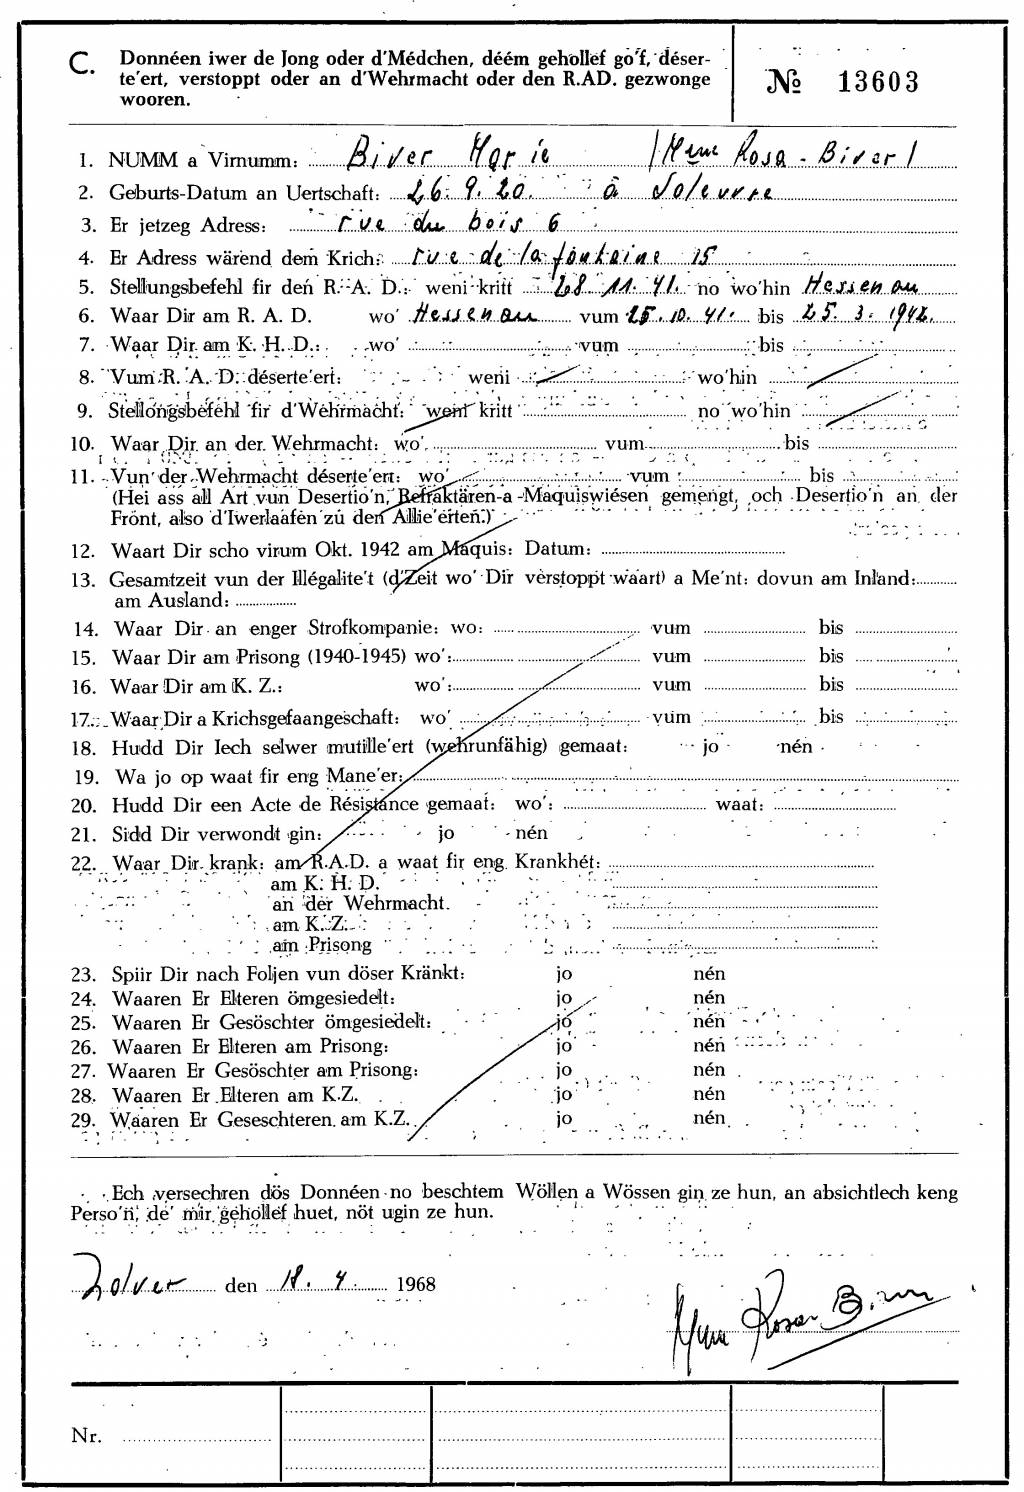 C. Donnéen iwer de Jong oder d'Médchen, déém gehollef go'f, déser-
te'ert, verstoppt oder an d'Wehrmacht oder den R.AD. gezwonge
wooren.
№ 13603
1. NUMM a Virnumm: Biver Marie (Mme Rosa - Biver)
2. Geburts-Datum an Uertschaft: 26. 9. 20. à Soleuvre
3. Er jetzeg Adress: rue du bois 6
4. Er Adress wärend dem Krich: rue de la fontaine 15
5. Stellungsbefehl fir den R. A. D.: weni kritt 28 11. 41. no wo'hin Hessenau
6. Waar Dir am R. A. D. wo' Hessenau vum 25. 10. 41. bis 25. 3. 1942.
7. Waar Dir am K. H. D.: wo' vum bis
8. Vum R. A. D. déserte'ert: weni wo'hin
9. Stellongsbefehl fir d'Wehrmacht: weni kritt no wo'hin
10. Waar Dir an der Wehrmacht: wo' vum bis
11. Vun der Wehrmacht déserte'ert: wo' vum bis
(Hei ass all Art vun Desertio'n, Refraktären a Maquiswiésen gemengt, och Desertio'n an der
Front, also d'Iwerlaafen zu den Allie'erten.)
12. Waart Dir scho virum Okt. 1942 am Maquis: Datum:
13. Gesamtzeit vun der Illégalite't (d'Zeit wo' Dir verstoppt waart) a Me'nt: dovun am Inland:
am Ausland:
14. Waar Dir an enger Strofkompanie: wo: vum bis
15. Waar Dir am Prisong (1940-1945) wo': vum bis
16. Waar Dir am K. Z.: wo': vum bis
17. Waar Dir a Krichsgefaangeschaft: wo' vum bis
18. Hudd Dir Iech selwer mutille'ert (wehrunfähig) gemaat: jo nén
19. Wa jo op waat fir eng Mane'er:
20. Hudd Dir een Acte de Résistance gemaat: wo': waat:
21. Sidd Dir verwondt gin: jo nén
22. Waar Dir krank: am R.A.D. a waat fir eng Krankhét:
am K. H. D.
an der Wehrmacht.
am K.Z.
am Prisong
23. Spiir Dir nach Foljen vun döser Kränkt: jo nén
24. Waaren Er Elteren ömgesiedelt: jo nén
25. Waaren Er Gesöschter ömgesiedelt: jo nén
26. Waaren Er Elteren am Prisong: jo nén
27. Waaren Er Gesöschter am Prisong: jo nén
28. Waaren Er Elteren am K.Z. jo nén
29. Waaren Er Geseschteren am K.Z. jo nén
Ech versechren dös Donnéen no beschtem Wöllen a Wössen gin ze hun, an absichtlech keng
Perso'n, de' mir gehollef huet, nöt ugin ze hun.
Zolver den 18. 4. 1968
Mme Rosa Biver
Nr.